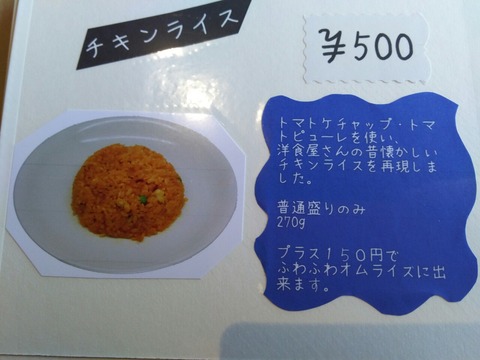 チキンライス
¥500
トマトケチャップ・トマ
トピューレを使い、
洋食屋さんの昔懐かしい
チキンライスを再現しま
した。
普通盛りのみ
270g
プラス１５０円で
ふわふわオムライズに出
来ます。